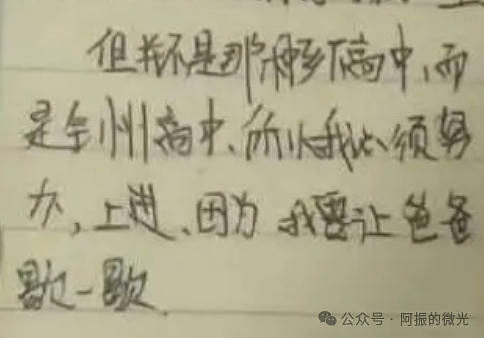 但我不是那种乡下高中,而
是全州高中、所以我必须努
力,上进、因为 我要让爸爸
歇一歇.
公众号·阿振的微光